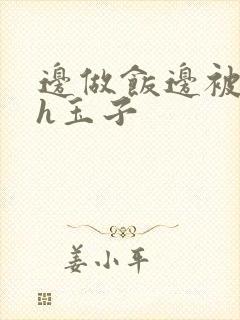 邊做飯邊被
h玉子
姜小平